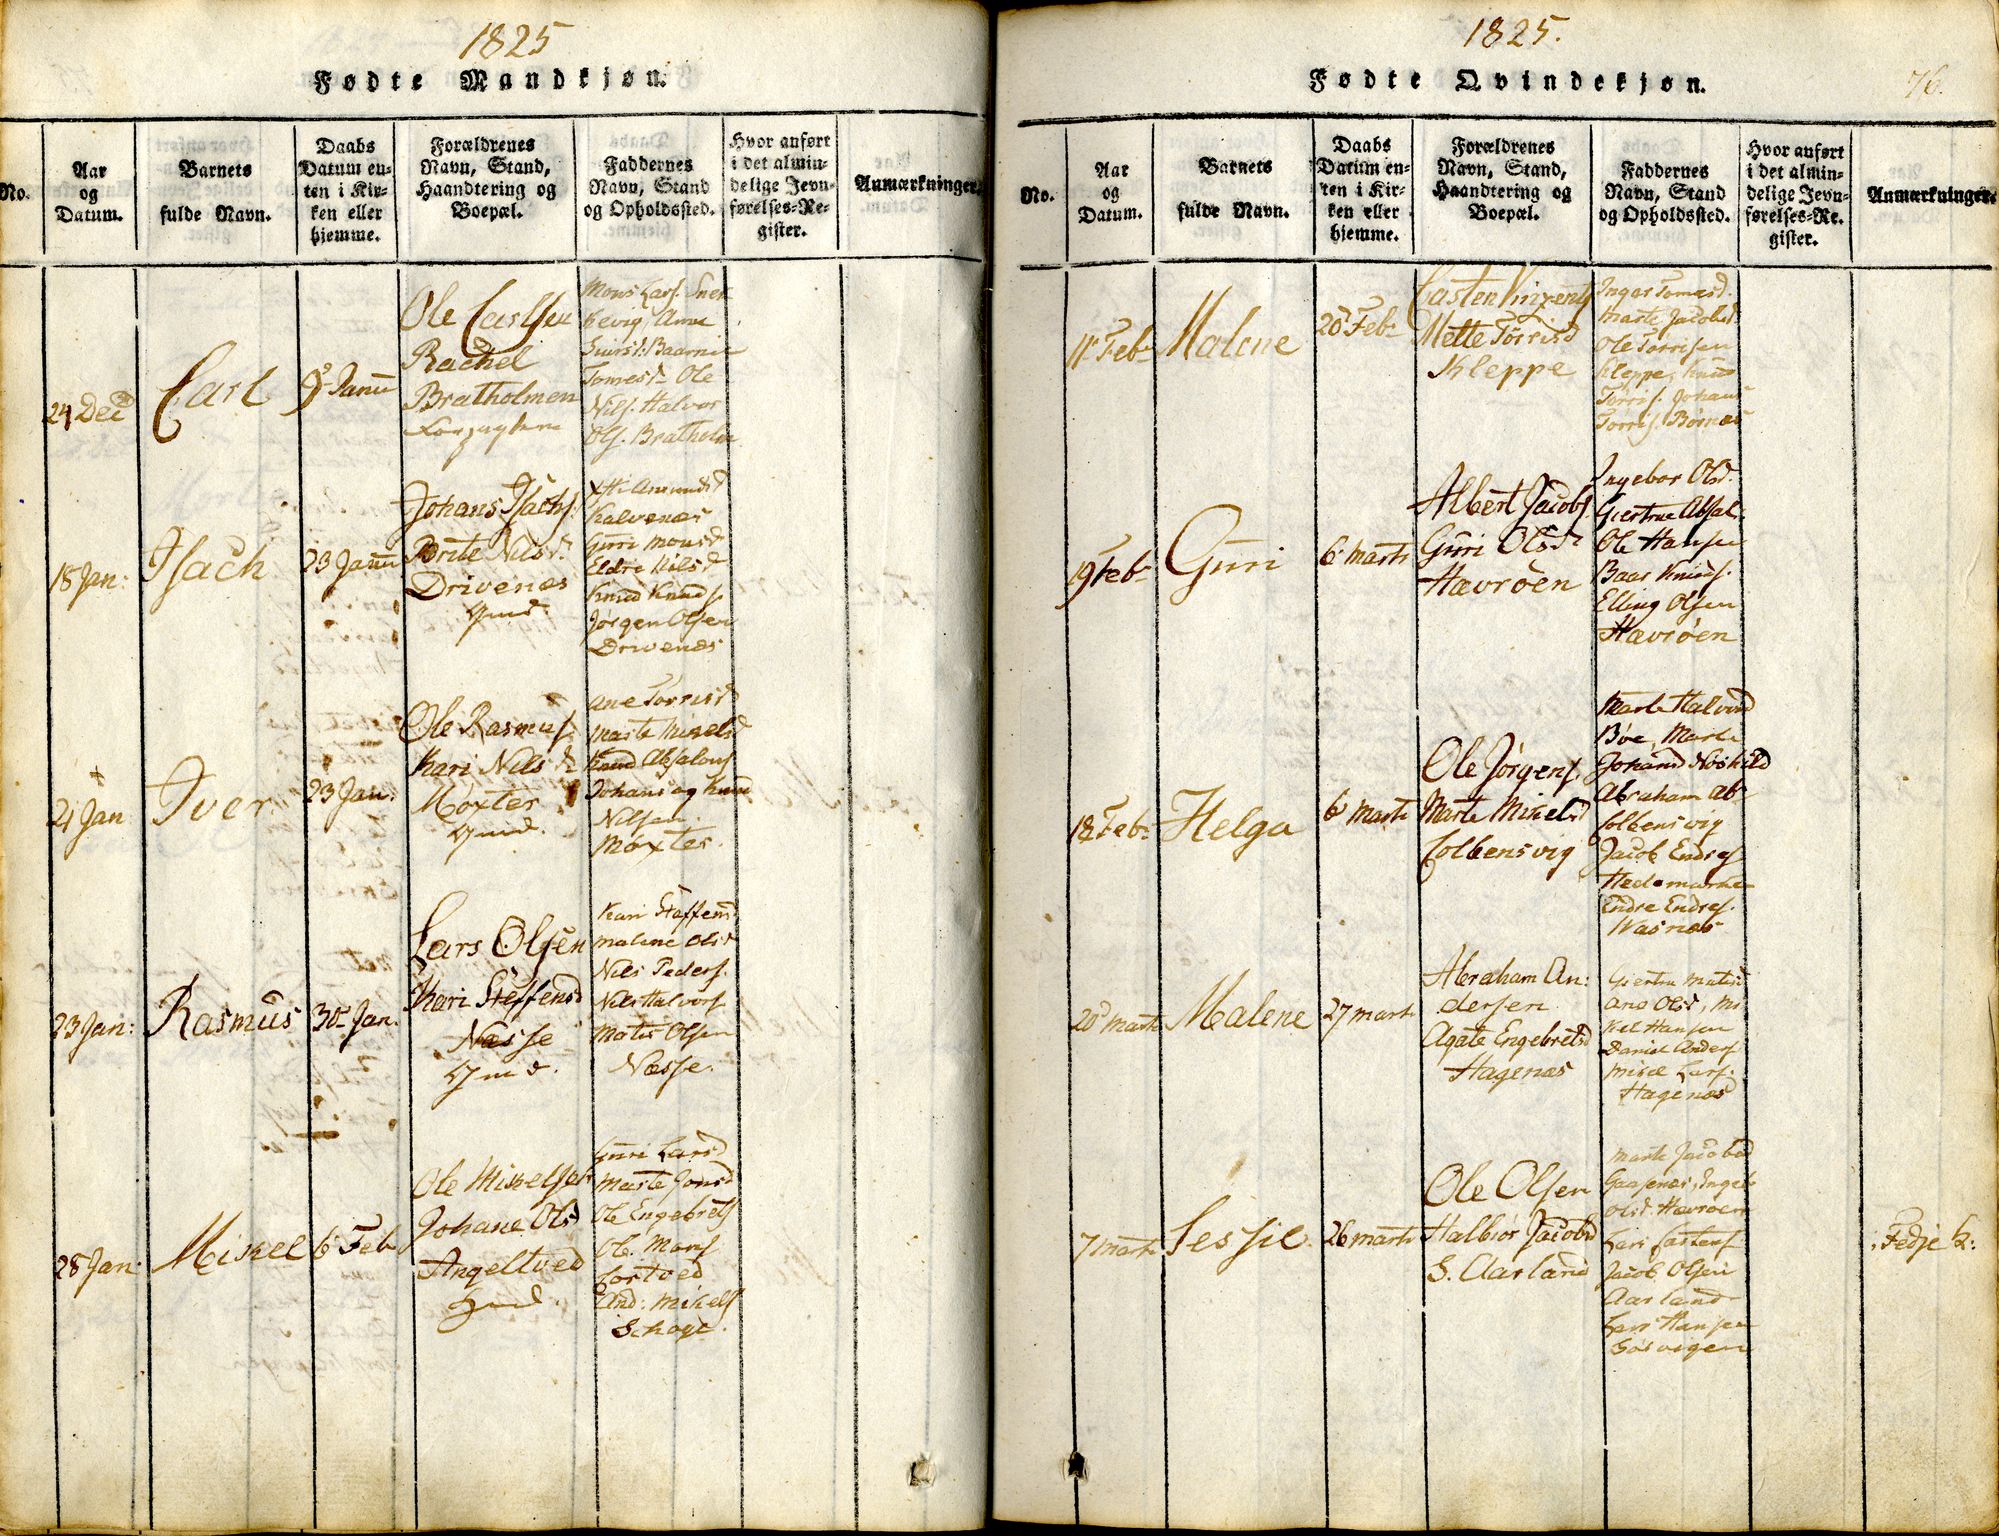 1825
Fødte Mandkjøn.
No.
Aar
og
Datum.
Barnets
fulde Navn.
Daabs
Datum en-
ten i Kir-
ken eller
hjemme.
Forældrenes
Navn, Stand,
Haandtering og
Boepæl.
Faddernes
Navn, Stand
og Opholdssted.
Hvor anført
i det almin-
delige Jevn-
førelses-Re-
gister.
Anmærkninger.
24 Dec
Carl
9 Janu
Ole Carlsen
Rachel
Bratholmen
Mons Lars.
bevig, Anne
Tomesd Ole
Nils. Halvor
Ols. Bratholm
18 Jan:
Isach
23 Janu
Johans Isachs.
Brite Nilsd.
Drivenæs
Gmd.
Amundsd
Kalvenæs
Guri Monsd
Eldre Nilsd
Knud Knuds.
Jørgen Olsen
Drivenæs
21 Jan
Iver
23 Jan:
Ole Rasmus.
Kari Nilsd
Møxter
Gmd.
Ane Torrisd
Marte Mikelsd
Knud Absalons
Johans og Knud
Nilsen.
Møxter.
23 Jan:
Rasmus
30 Jan.
Lars Olsen
Kari Steffensd
Næsse
Gmd.
Kari Steffensd
Malene Olsd
Nils Peders.
Nils Halvors
Matis Olsen
Næsse.
28 Jan:
Mikel
6 Feb
Ole Mikelsen
Johane Olsd
Angeltved
Gmd.
Guri Larsd
Marte Jonsd
Ole Engebrets
Ole Mons
Cortved
And: Mikels
Schoge.
1825.
76.
Fødte Qvindekjøn.
No.
Aar
og
Datum.
Barnets
fulde Navn.
Daabs
Datum en-
ten i Kir-
ken eller
hjemme.
Forældrenes
Navn, Stand,
Haandtering og
Boepæl.
Faddernes
Navn, Stand
og Opholdssted.
Hvor anført
i det almin-
delige Jevn-
førelses-Re-
gister.
Anmærkninger.
11 Feb
Malene
20 Feb
Casten Vinzents
Mette Tørrisd
Kleppe
Inger Tomasd.
Marte Jacobsd.
Ole Torrisen
Kleppe, Knud
Tørris. Johans
Tørris. Børnæs
19 Feb
Guri
6 Marti
Albert Jacobs.
Guri Olsd
Hævrøen
Ingebor Olsd.
Giertrue Absal.
Ole Hansen
Baar Knuds.
Elling Olsen
Hævrøen
18 Feb:
Helga
6 Marti
Ole Jørgens.
Marte Mikelsd
Colbensvig
Marte Halvorsd
Bøe, Marte
Abraham Ab
Colbensvig
Jacob Endres
Hedemarke
Endre Endres.
Wasnæs
20 Marti
Malene
27 Marti
Abraham An:
dersen
Agate Engebretsd
Hagenæs
Giertru Matisd
Ane Olsd, Mi
kel Hansen
Daniel Anders
Mikel Lars.
Hagenæs
7 Marti
Sessie
26 Marti
Ole Olsen
Halbiør Jacobsd
S. Aarland
Marte Jacobsd
Gaasenæs, Ingeb
Olsd. Hævrøen
Lars Castens
Jacob Olsen
Aarland
Lars Hansen
Søsvigen
Fedje K: